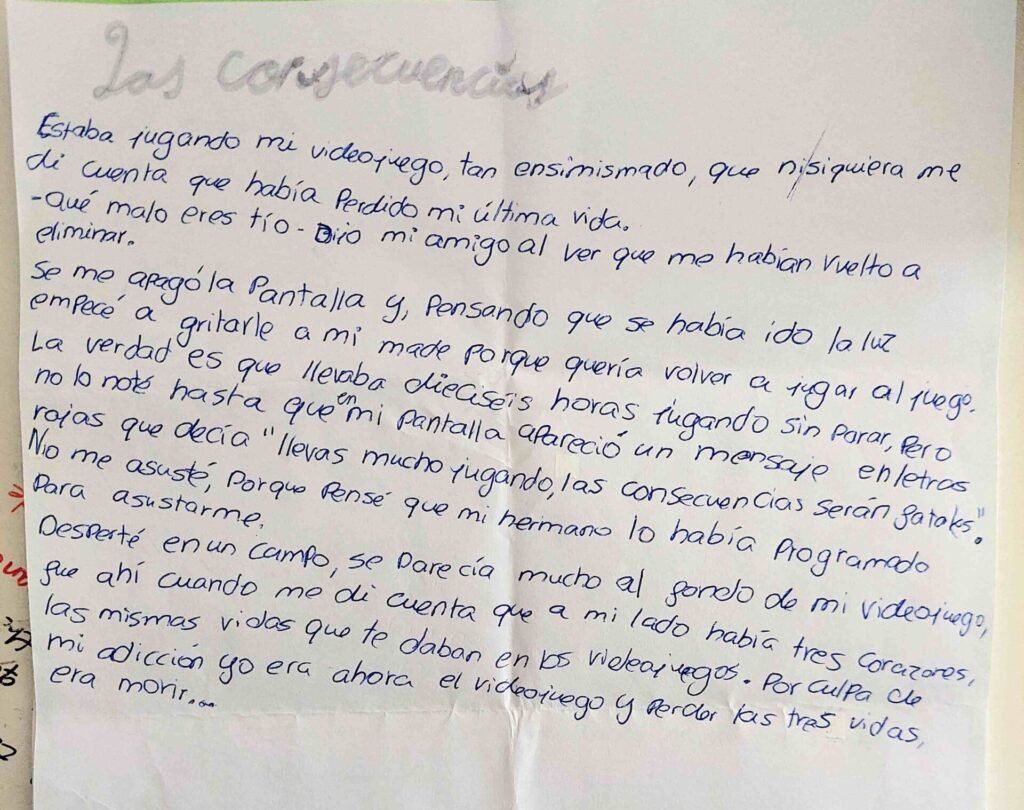 Las consecuencias
Estaba jugando mi videojuego, tan ensimismado, que ni/siquiera me
di cuenta que había Perdido mi última vida.
-Qué malo eres tío - Dijo mi amigo al ver que me habían vuelto a
eliminar.
Se me apagó la Pantalla y, Pensando que se había ido la luz
empecé a gritarle a mi made porque quería volver a jugar al juego.
La verdad es que llevaba dieciséis horas jugando sin parar, Pero
no lo noté hasta que en mi pantalla apareció un mensaje en letras
rojas que decía "llevas mucho jugando, las consecuencias serán fatales".
No me asusté, Porque Pensé que mi hermano lo había Programado
Para asustarme.
Desperté en un campo, se Parecía mucho al fondo de mi videojuego,
fue ahí cuando me di cuenta que a mi lado había tres corazones,
las mismas vidas que te daban en los videojuegos. Por culpa de
mi adicción yo era ahora el videojuego y Perder las tres vidas,
era morir...